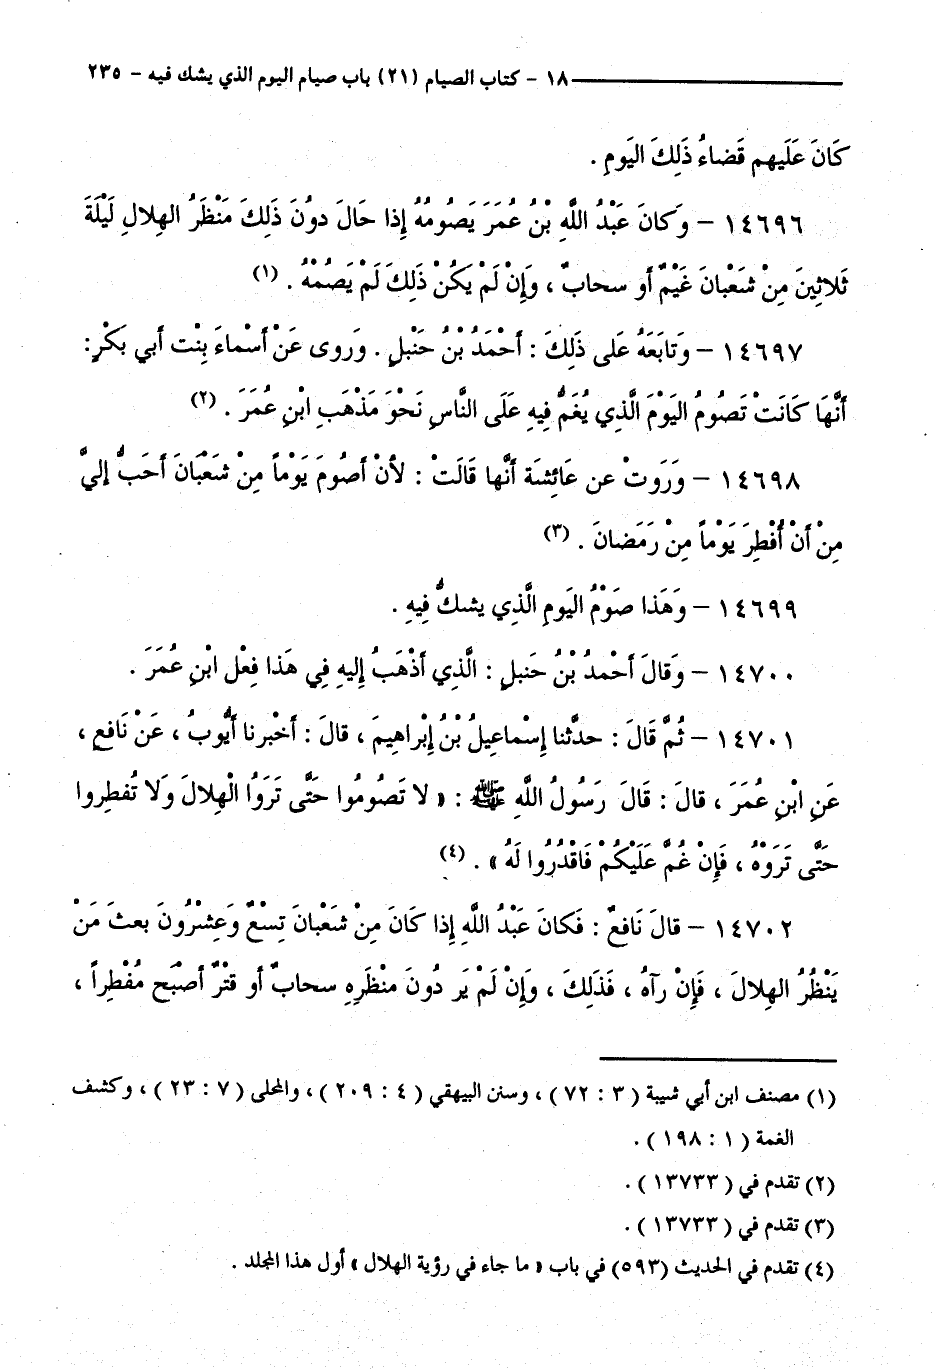 ١٨ - كتاب الصيام (٢١) باب صيام اليوم الذي يشك فيه - ٢٣٥
كَانَ عَلَيهم قَضاءُ ذَلِكَ اليَومِ .
١٤٦٩٦ - وَكانَ عَبْدُ اللَّهِ بْنُ عُمَرَ يَصُومُهُ إِذا حَالَ دونَ ذَلِكَ مَنْظَرُ الهِلالِ لَيْلَةَ
ثَلاثِينَ مِنْ شَعْبانَ غَيْمٌ أو سحابٌ ، وَإِنْ لَمْ يَكُنْ ذَلِكَ لَمْ يَصُمْهُ . (١)
١٤٦٩٧ - وَتابَعَهُ عَلى ذَلِكَ : أحْمَدُ بْنُ حَنْبلٍ . وَروى عَنْ أسْماءَ بِنْت أبي بَكْرٍ:
أنَّها كَانَتْ تَصُومُ اليَوْمَ الَّذِي يُغَمُّ فِيهِ عَلَى النَّاسِ نَحْوَ مَذْهَبِ ابْنِ عُمَرَ . (٢)
١٤٦٩٨ - وَرَوتْ عن عَائِشَة أنَّها قَالَتْ : لأنْ أصُومَ يَوْماً مِنْ شَعْبَانَ أحَبُّ إليَّ
مِنْ أنْ أُفْطِرَ يَوْماً مِنْ رَمَضانَ . (٣)
١٤٦٩٩ - وَهَذا صَوْمُ اليَومِ الَّذِي يشكُّ فِيهِ .
١٤٧٠٠ - وَقالَ أحْمدُ بْنُ حَنبلٍ : الَّذي أذْهَبُ إِليهِ فِي هَذا فِعْل ابْنِ عُمَرَ .
١٤٧٠١ - ثُمَّ قَالَ : حدَّثنا إِسْماعِيلُ بْنُ إِبْراهِيمَ ، قالَ : أخْبرنا أيُّوبُ ، عَنْ نَافعٍ ،
عَنِ ابْنِ عُمَرَ ، قالَ : قَالَ رَسُولُ اللَّهِ ﷺ : « لا تَصُومُوا حَتَّى تَرَوُا الْهِلالَ وَلا تُفطِروا
حَتَّى تَرَوْهُ ، فَإِنْ غُمَّ عَلَيْكُمْ فَاقْدُرُوا لَهُ » . (٤)
١٤٧٠٢ - قالَ نَافعٌ : فَكانَ عَبْدُ اللَّهِ إِذا كَانَ مِنْ شَعْبَانَ تِسْعٌ وَعِشْرُونَ بعثَ مَنْ
يَنْظُرُ الهِلالَ ، فَإِنْ رآهُ ، فَذَلِكَ ، وَإِنْ لَمْ يَر دُونَ مَنْظَرِهِ سحابٌ أو قتْرٌ أصْبَح مُفْطِراً ،
(١) مصنف ابن أبي شيبة ( ٣ : ٧٢ ) ، وسنن البيهقي ( ٤ : ٢٠٩ ) ، والمحلى ( ٧ : ٢٣ ) ، وكشف
الغمة ( ١ : ١٩٨ ) .
(٢) تقدم في ( ١٣٧٣٣ ) .
(٣) تقدم في ( ١٣٧٣٣ ) .
(٤) تقدم في الحديث (٥٩٣) في باب « ما جاء في رؤية الهلال » أول هذا المجلد .